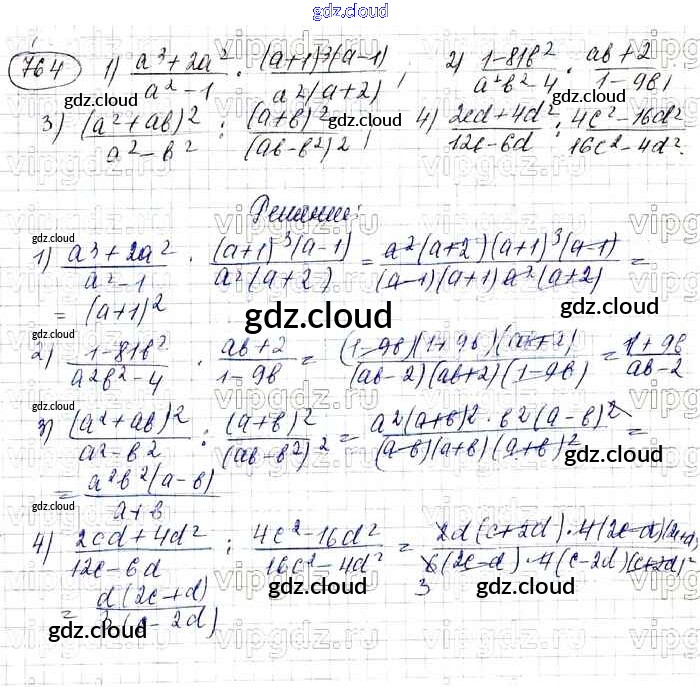 gdz.cloud
764 1) (a³+2a²)/(a²-1) · ((a+1)³(a-1))/(a²(a+2)); 2) (1-81b²)/(a²b²-4) · (ab+2)/(1-9b);
gdz.cloud gdz.cloud gdz.cloud
3) (a²+ab)²/(a²-b²) : (a+b)²/(ab-b²)²; 4) (2cd+4d²)/(12c-6d) : (4c²-16d²)/(16c²-4d²).
Решение:
gdz.cloud
1) (a³+2a²)/(a²-1) · ((a+1)³(a-1))/(a²(a+2)) = (a²(a+2)(a+1)³(a-1))/((a-1)(a+1)a²(a+2)) =
= (a+1)²
gdz.cloud gdz.cloud gdz.cloud
2) (1-81b²)/(a²b²-4) · (ab+2)/(1-9b) = ((1-9b)(1+9b)(ab+2))/((ab-2)(ab+2)(1-9b)) = (1+9b)/(ab-2)
gdz.cloud
3) (a²+ab)²/(a²-b²) : (a+b)²/(ab-b²)² = (a²(a+b)²·b²(a-b)²)/((a-b)(a+b)(a+b)²) =
gdz.cloud gdz.cloud
= (a²b²(a-b))/(a+b)
gdz.cloud
4) (2cd+4d²)/(12c-6d) : (4c²-16d²)/(16c²-4d²) = (2d(c+2d)·4(2c-d)(2c+d))/(6(2c-d)·4(c-2d)(c+2d))
3
= (d(2c+d))/(3(c-2d))
gdz.cloud gdz.cloud gdz.cloud